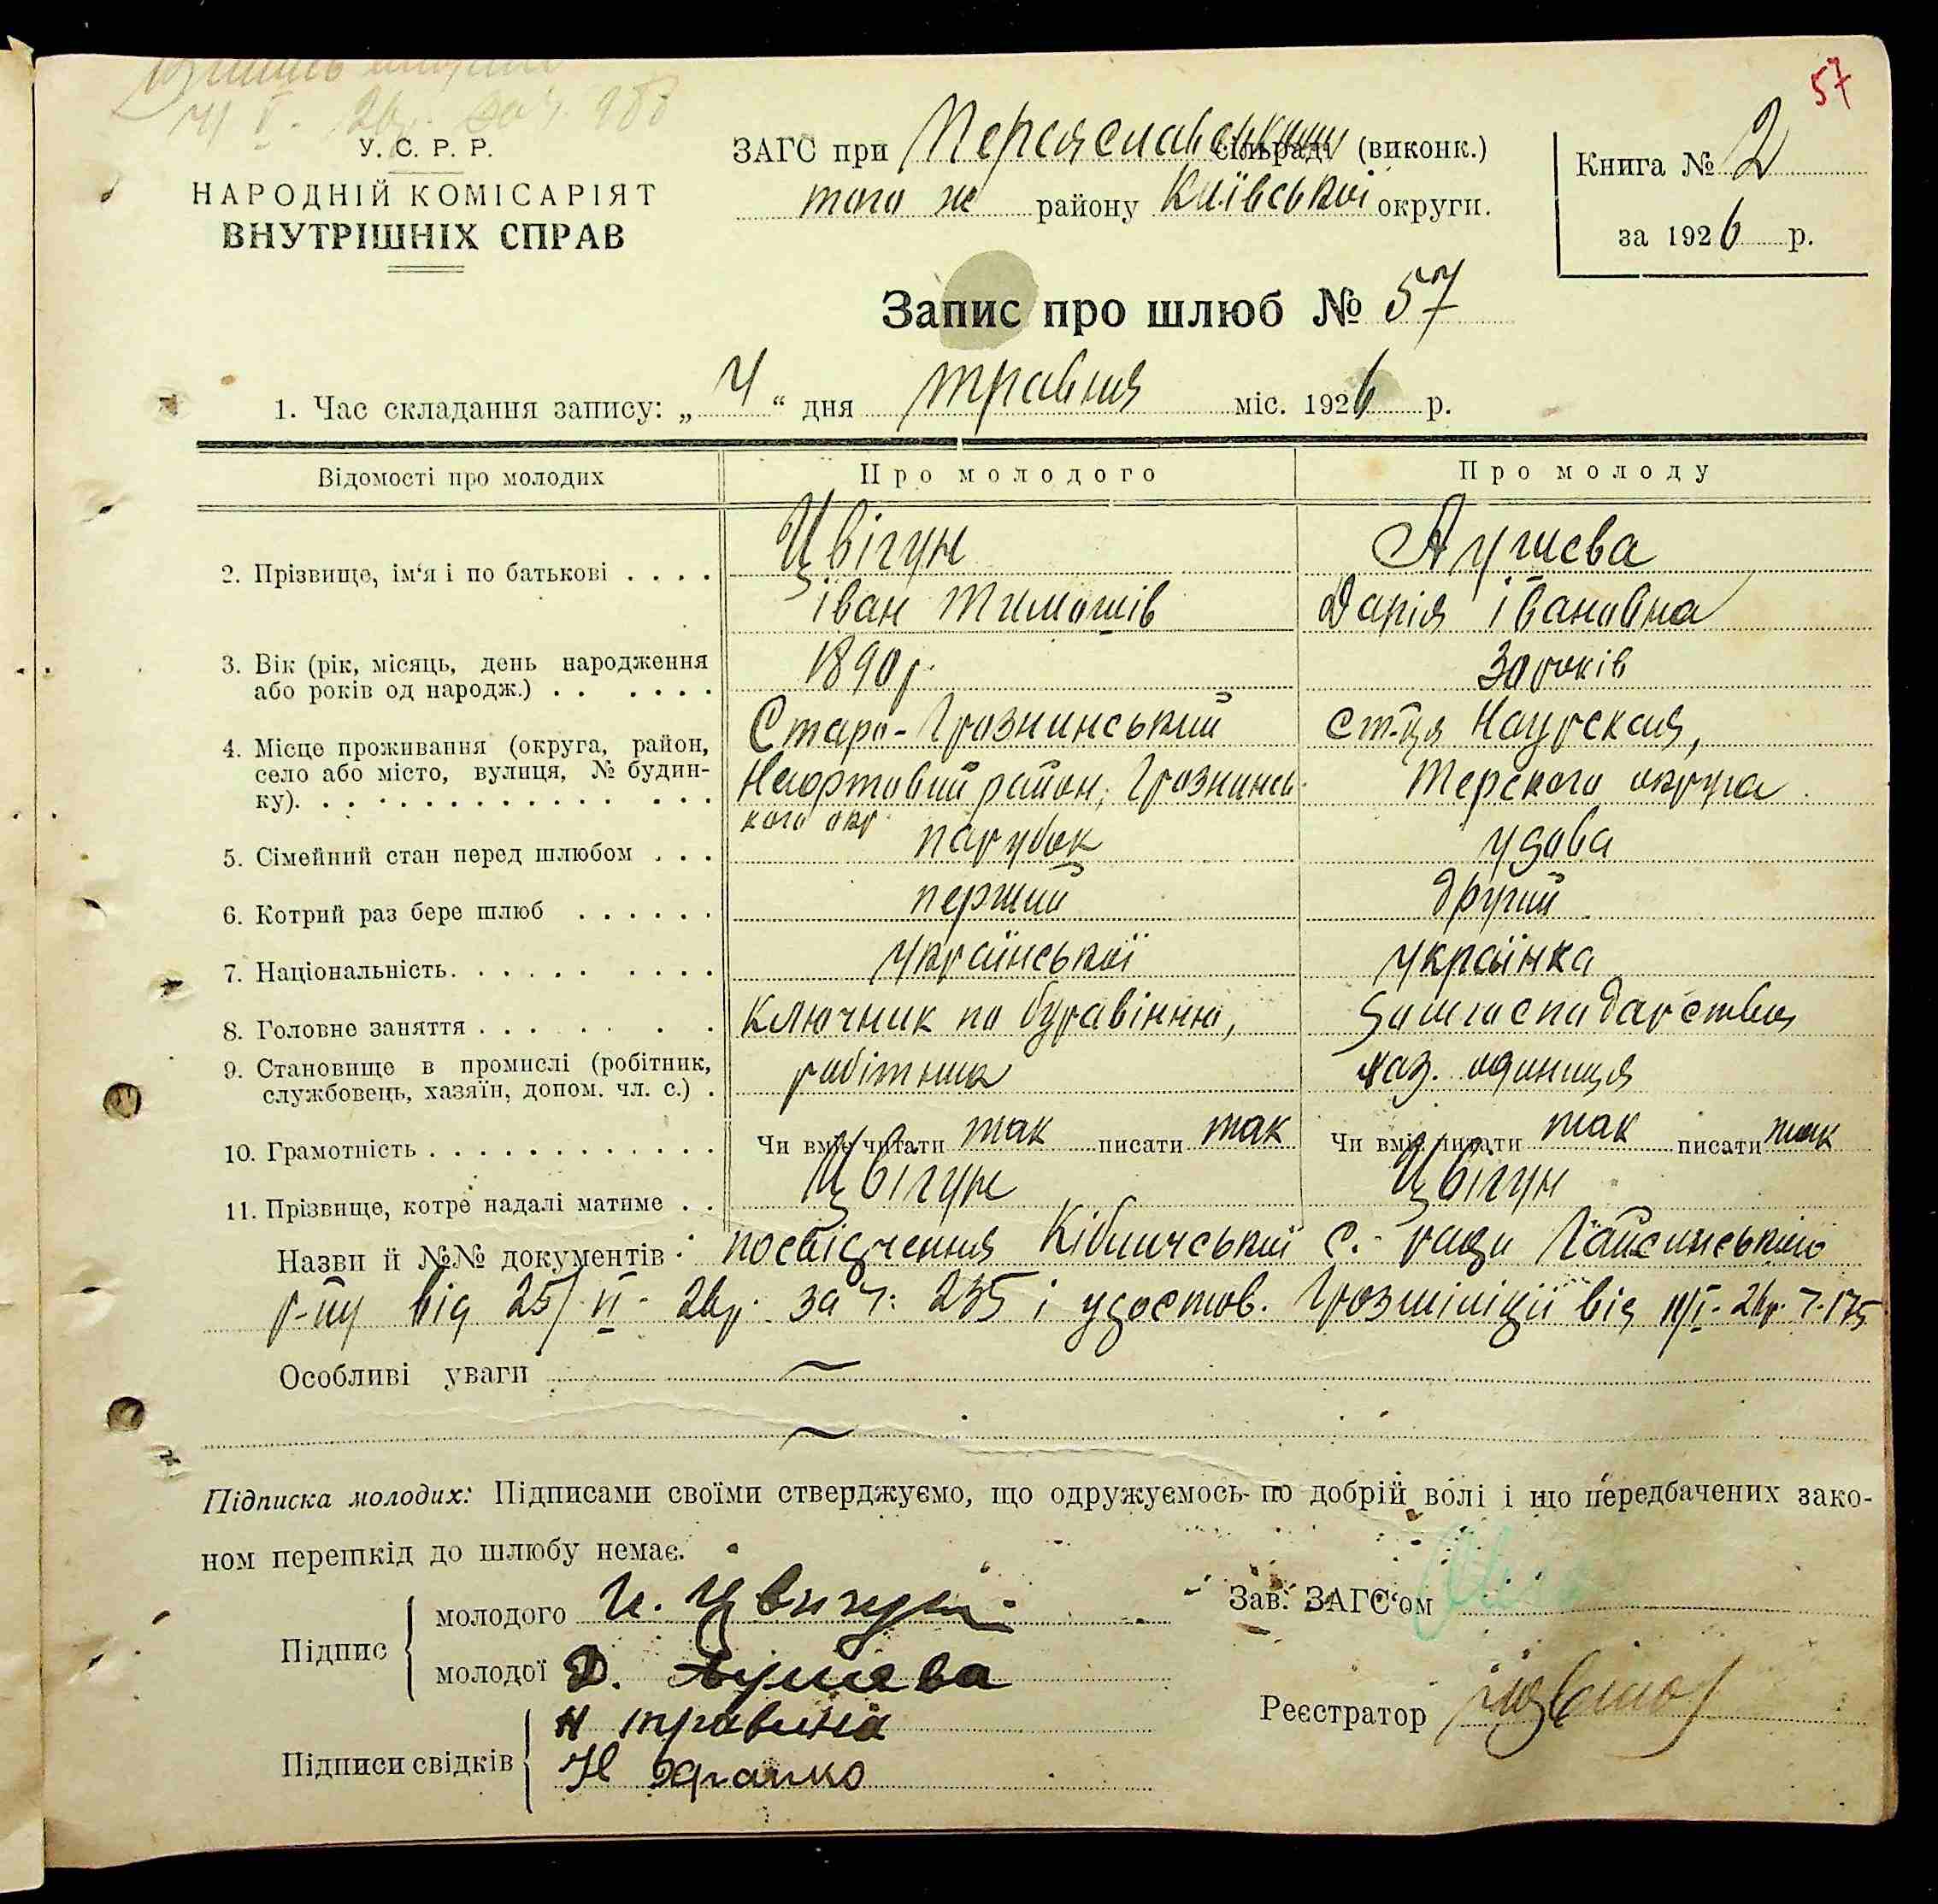 57
У. С. Р. Р.
НАРОДНІЙ КОМІСАРІЯТ
ВНУТРІШНІХ СПРАВ
ЗАГС при Переяславському сільраді (виконк.)
того ж району Київської округи.
Книга № 2
за 1926 р.
Запис про шлюб № 57
1. Час складання запису: „ 4 “ дня травня міс. 1926 р.
Відомості про молодих Про молодого Про молоду
2. Прізвище, ім‘я і по батькові . . . . Цвігун Аушева
Іван Тимошів Дарія Івановна
3. Вік (рік, місяць, день народження або років од народж.) . . . . . . 1890 р. 30 років
4. Місце проживання (округа, район, село або місто, вулиця, № будинку). Старо-Грознинський ст-ця Наурская,
Нафтовий район, Грознинсь- Терского округа
кого окр.
5. Сімейний стан перед шлюбом . . . парубок удова
6. Котрий раз бере шлюб . . . . . . перший другий
7. Національність. . . . . . . . . . української українка
8. Головне заняття . . . . . . . . Ключник по буравінню, домгосподарство
9. Становище в промислі (робітник, службовець, хазяїн, допом. чл. с.) . робітник хаз. одиниця
10. Грамотність . . . . . . . . . . . . . Чи вміє читати так писати так Чи вміє читати так писати так
11. Прізвище, котре надалі матиме . . Цвігун Цвігун
Назви й №№ документів: посвідчення Кібличської с.-ради Гайсинського
р-ну від 25/II-26р. за ч: 235 і удостов. Грозміліції від 11/I-26р. ч. 175
Особливі уваги ~
~
Підписка молодих: Підписами своїми стверджуємо, що одружуємось по добрій волі і що передбачених зако-
ном перешкід до шлюбу немає.
Підпис
молодого И. Цвигун
молодої Д. Аушева
Підписи свідків
Н
Н
Зав. ЗАГС‘ом
Реєстратор